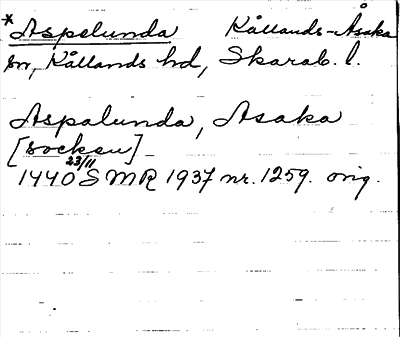 * Aspelunda Kållands-Åsaka
sn, Kållands hd, Skarab. l.
Aspalunda, Asaka
[socken]
1440 23/11 SMR 1937 nr. 1259. orig.